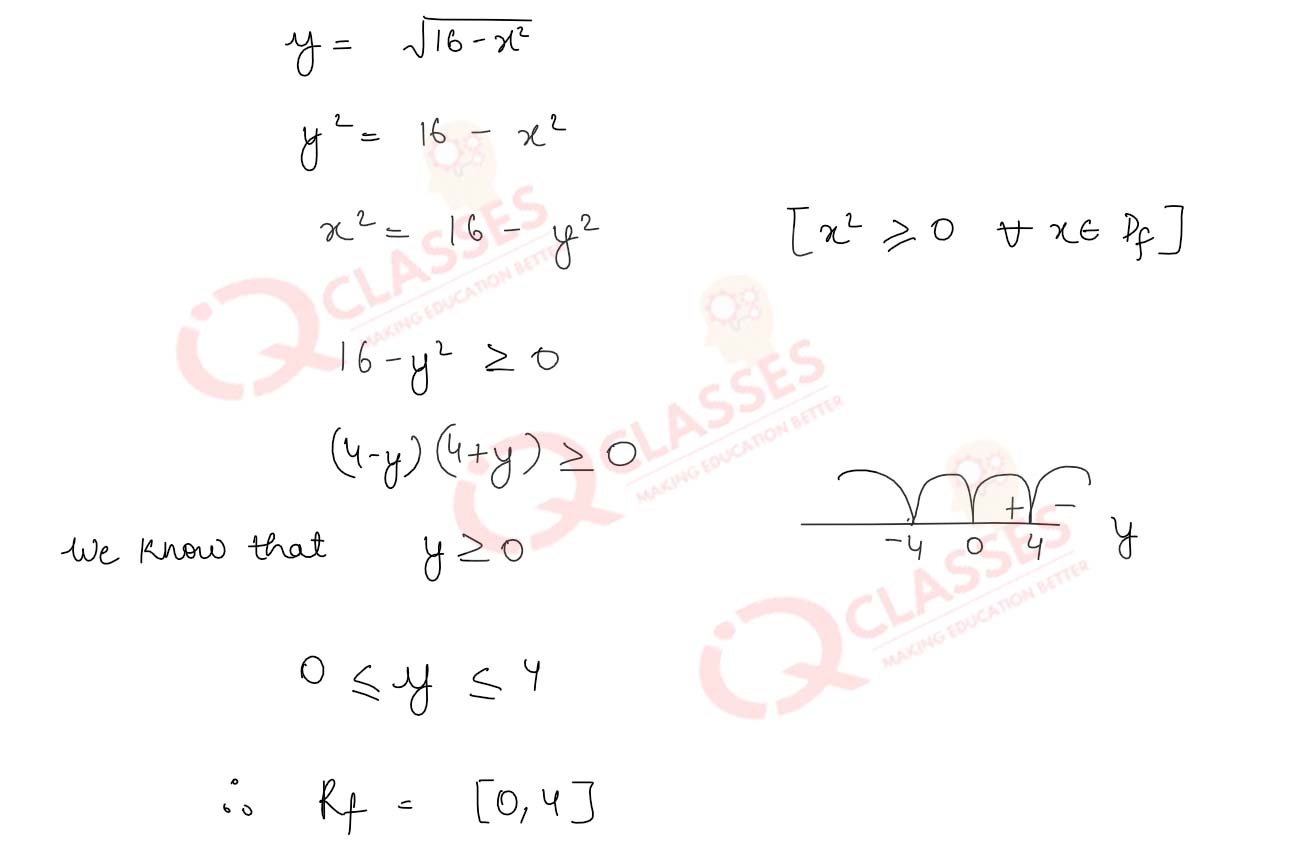 y = √16 - x²
y² = 16 - x²
x² = 16 - y² [x² ⩾ 0 ∀ x ∈ Df]
16 - y² ≥ 0
(4-y) (4+y) ≥ 0
+ -
-4 0 4 y
We know that y ≥ 0
0 ≤ y ≤ 4
∴ Rf = [0, 4]
IQ CLASSES
MAKING EDUCATION BETTER
IQ CLASSES
MAKING EDUCATION BETTER
IQ CLASSES
MAKING EDUCATION BETTER